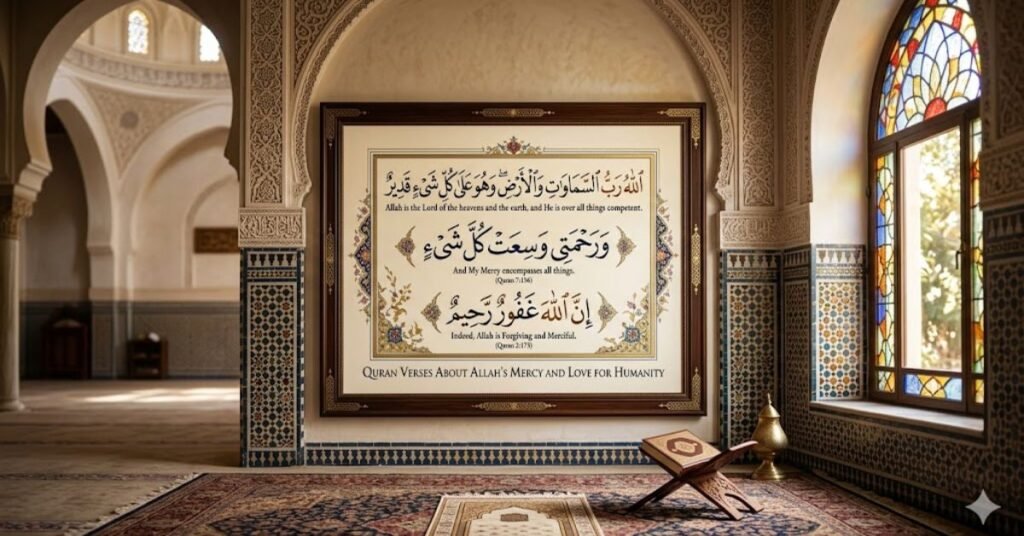 اللَّهُ رَبُّ السَّمَاوَاتِ وَالْأَرْضِ ۖ وَهُوَ عَلَىٰ كُلِّ شَيْءٍ قَدِيرٌ
Allah is the Lord of the heavens and the earth, and He is over all things competent.
وَرَحْمَتِي وَسِعَتْ كُلَّ شَيْءٍ
And My Mercy encompasses all things.
(Quran 7:156)
إِنَّ اللَّهَ غَفُورٌ رَّحِيمٌ
Indeed, Allah is Forgiving and Merciful.
(Quran 2:173)
QURAN VERSES ABOUT ALLAH'S MERCY AND LOVE FOR HUMANITY